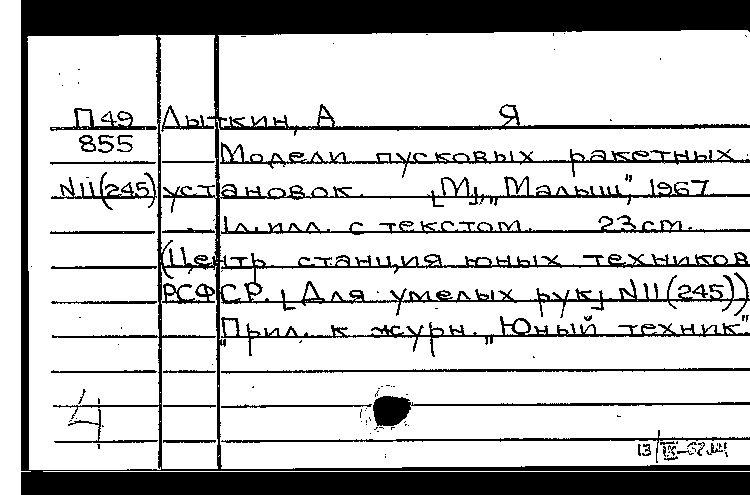 П49 Лыткин, А Я
855 Модели пусковых ракетных
N11(245) установок. [М], „Малыш", 1967
1л. илл. с текстом. 23 cm.
(Центр. станция юных техников
РСФСР. [Для умелых рук] N11(245))
"Прил. к журн. „Юный техник"
4